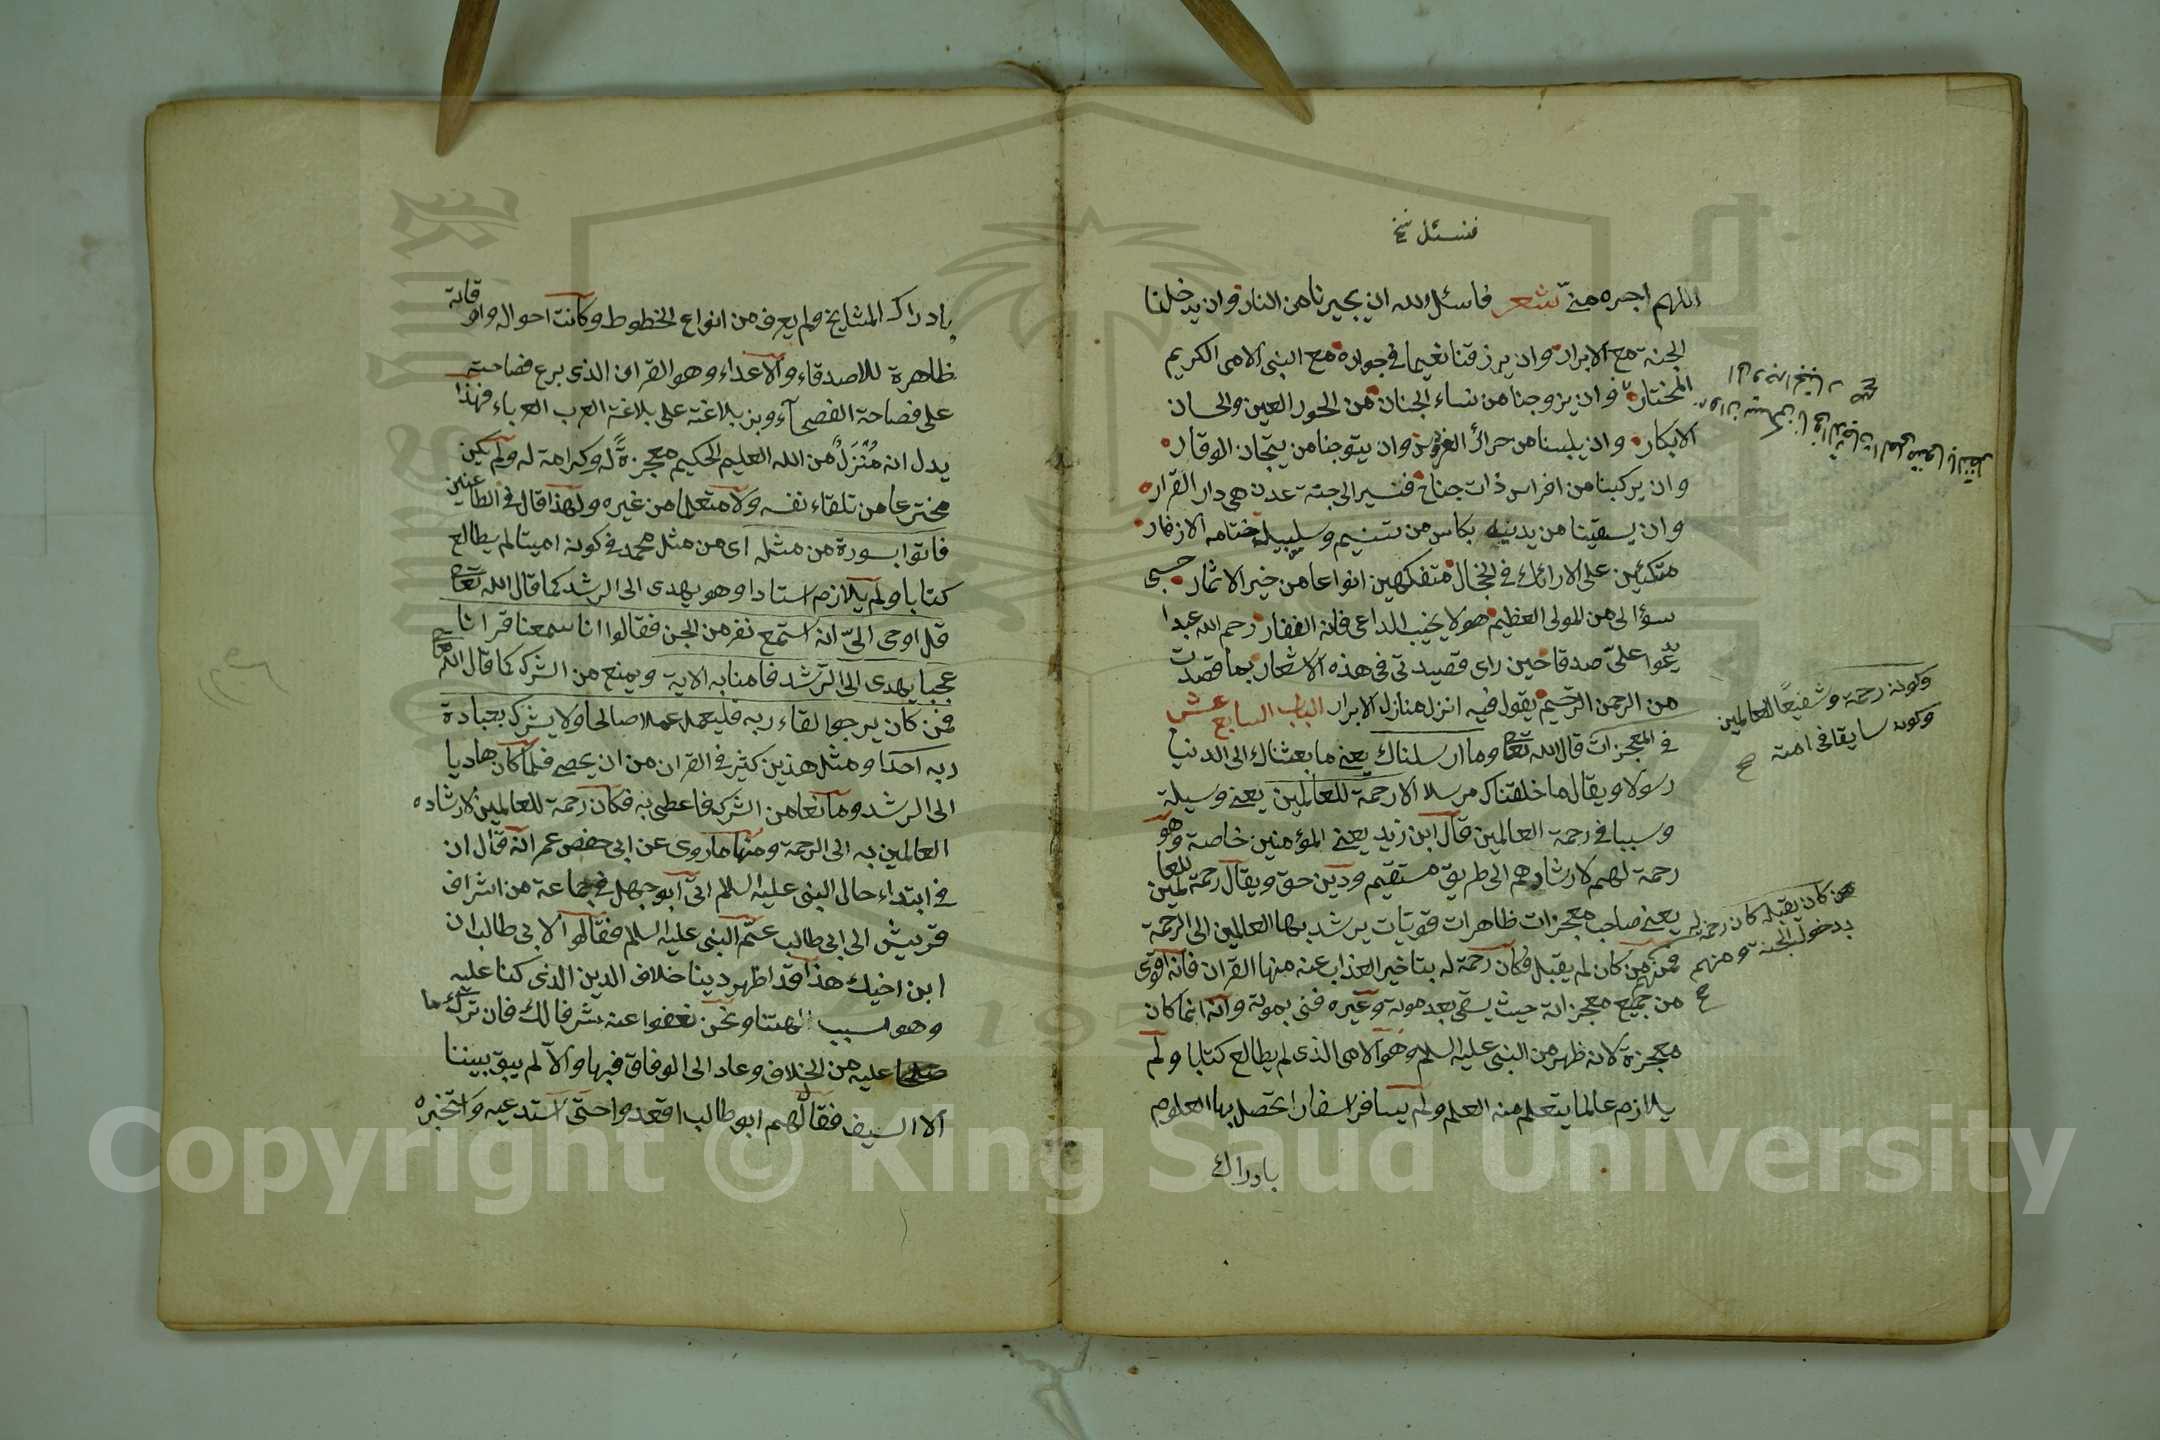 فنسئل نخ
اللهم اجره منى شعر فاسئل الله ان يجيرنا من النار وان يدخلنا
الجنة مع الابرار وان يرزقنا نعيما فى جواره مع النبى الامى الكريم
المختار وان يزوجنا من نساء الجنان من الحور العين والحسان
الابكار وان يلبسنا من حرائر وان يتوجنا من تيجان الوقار
وان يركبنا من افراس ذات جناح فنسير الى جنة عدن هى دار القرار
وان يسقينا من يدنيه بكاس من تسنيم وسلسبيلة ختامه الازفار
متكئين على الارائك فى متفكهين انواعا من خير الاثمار حسبى
سؤالى من المولى العظيم هو لا يخيب الداعى فانه الغفار رحم الله عبدا
يدعوا على صدقا حين راى قصيدتى فى هذه الاشعار بما قصدت
من الرحمن الرحيم يقول فيه انزله منازل الابرار الباب السابع عشر
فى المعجزات قال الله تعالى وما ارسلناك يعنى ما بعثناك الى الدنيا
رسولا ويقال ما خلقناك مرسلا الا رحمة للعالمين يعنى وسيلة
وسببا فى رحمة العالمين قال ابن زيد يعنى المؤمنين خاصة وهو
رحمة لهم لارشادهم الى طريق مستقيم ودين حق ويقال رحمة للعالمين
يعنى صاحب معجزات ظاهرات قويات يرشد بها العالمين الى الرحمة
فمنهم من كان لم يقبل فكان رحمة له بتاخير العذاب عنه منها القران فانه اقوى
من جميع معجزاته حيث يبقى بعد موته وغيره فنى بموته وانه انما كان
معجزة لانه ظهر من النبى عليه السلم وهو الامى الذى لم يطالع كتابا ولم
يلازم عالما يتعلم منه العلم ولم يسافر اسفارا تحصل بها العلوم
بادراك
وكونه رحمة وشفيعا للعالمين
وكونه سابقا فى امته صح
من كان يقبله كان رحمة له
بدخول الجنة ومنهم
صح
بادراك المشايخ ولم يعرف من انواع الخطوط وكانت احواله واوقاته
ظاهرة للاصدقاء والاعداء وهو القران الذى برع فصاحته
على فصاحة الفصحاء وبز بلاغة على بلاغة العرب العرباء فهذا
يدل انه منزل من الله العليم الحكيم معجزة له وكرامة له ولم يكن
مخترعا من تلقاء نفسه ولا متعلما من غيره ولهذا قال فى الطاعنين
فاتوا بسورة من مثله اى من مثل محمد فى كونه اميتا لم يطالع
كتابا ولم يلازم استادا وهو يهدى الى الرشد كما قال الله تعالى
قل اوحى الى انه استمع نفر من الجن فقالوا انا سمعنا قرانا
عجبا يهدى الى الرشد فامنا به الاية ويمنع من الشرك كما قال الله تعالى
فمن كان يرجوا لقاء ربه فليعمل عملا صالحا ولا يشرك بعبادة
ربه احدا ومثل هذين كثير فى القران من ان يحصى فلما كان هاديا
الى الرشد ومانعا من الشرك فاعطى به فكان رحمة للعالمين لارشاده
العالمين به الى الرحمة ومنها ما روى عن ابى حفص عمر انه قال ان
فى ابتداء حال النبى عليه السلام اتى ابو جهل فى جماعة من اشراف
قريش الى ابى طالب عم النبى عليه السلم فقالوا لابى طالب ان
ابن اخيك هذا قد اظهر دينا خلاف الدين الذى كنا عليه
وهو يسبب الهتنا ونحن نعفوا عنه شرفا لك فان ترك ما
عليه من الخلاف وعاد الى الوفاق فبها والا لم يبق بيننا
الا السيف فقال لهم ابو طالب اقعدوا حتى استدعيه واستخبره
Copyright © King Saud University